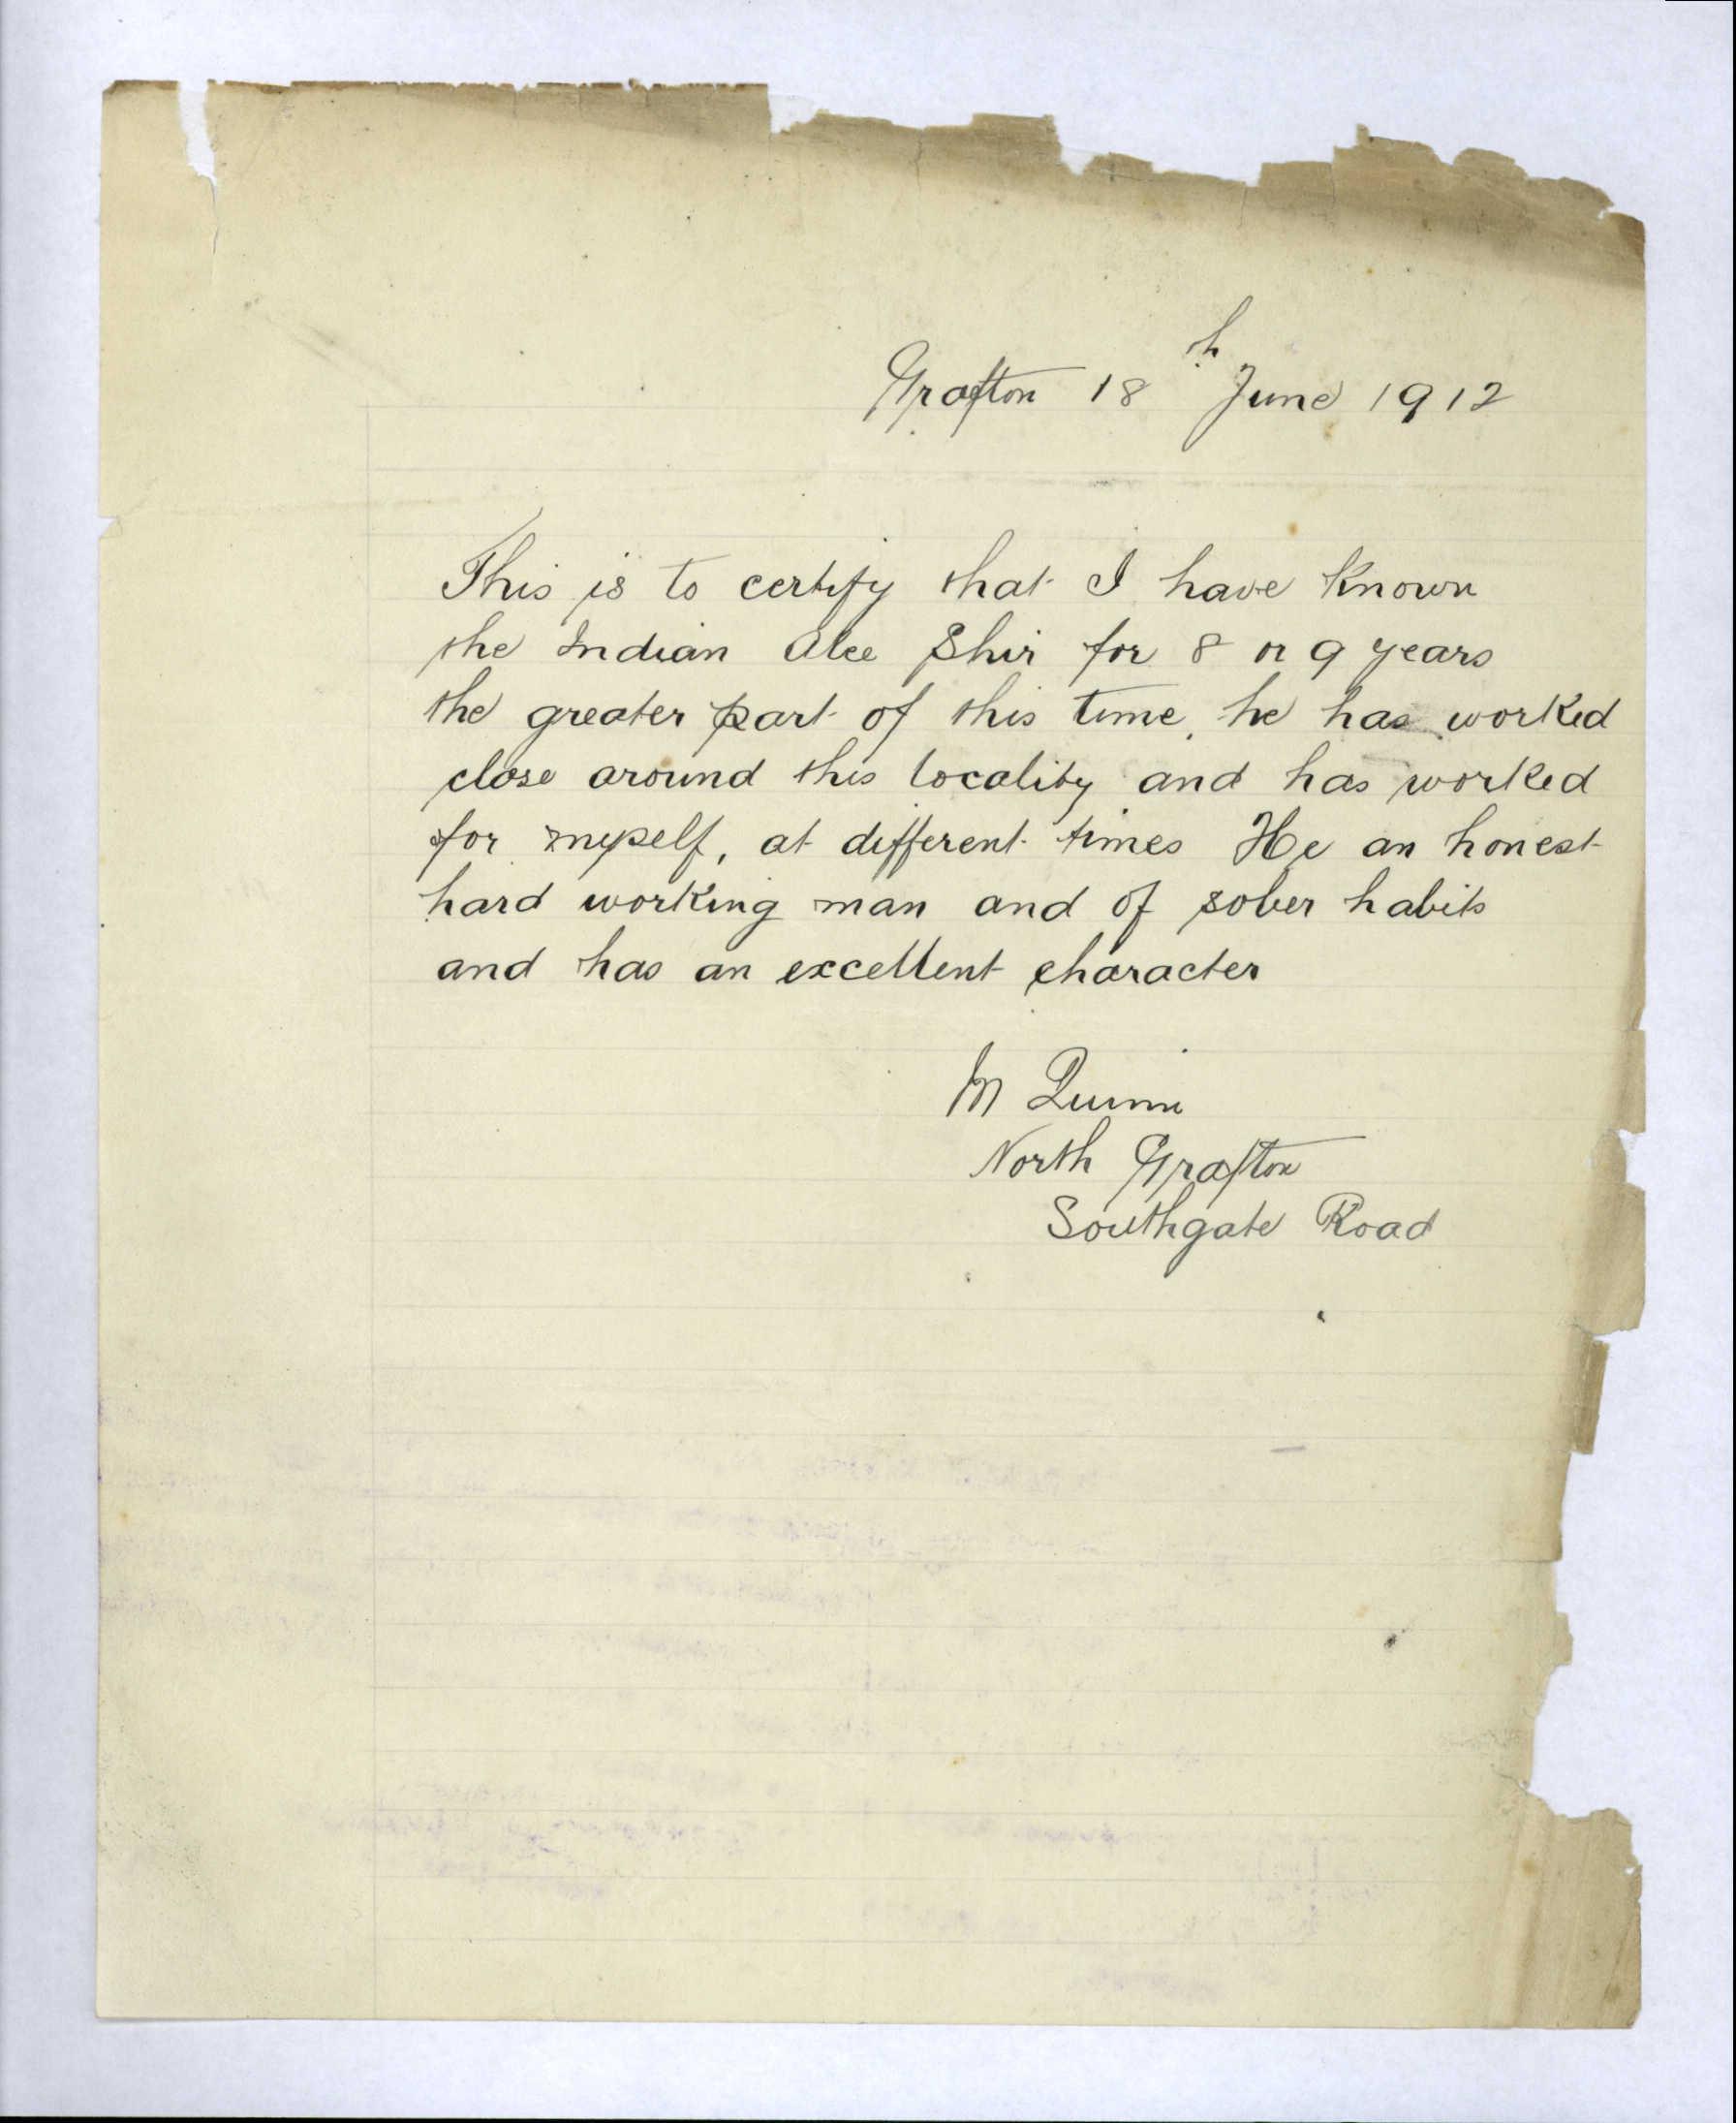 Grafton 18th June 1912
This is to certify that I have known
the Indian Alee Shir for 8 or 9 years
the greater part of this time, he has worked
close around this locality and has worked
for myself, at different times He an honest
hard working man and of sober habits
and has an excellent character
M Quinn
North Grafton
Southgate Road